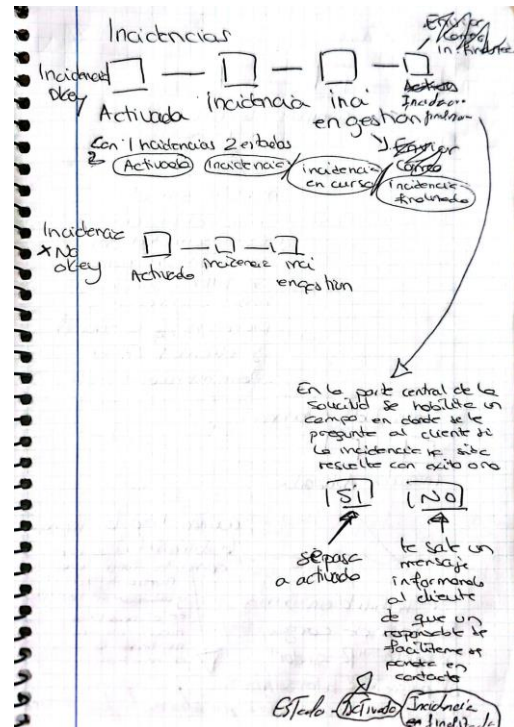 Incidencias
Enviar
Correo
Incidencia
Okey
Activada
incidencia
inci
en gestión
Incidencia
Con 1 Incidencias 2 estados
Activada
Incidencia
incidencia
en curso
Enviar
Correo
incidencia
finalizada
Incidencia
X No
okey
Activada
incidencia
inci
en gestion
En la parte central de la
solicitud se habilita un
campo en donde se le
pregunte al cliente si
la incidencia ha sido
resuelta con exito o no
SI
NO
se pasa
a activado
te sale un
mensaje
informando
al cliente
de que un
responsable de
se pondra en
contacto
Estado - Activado
Incidencia